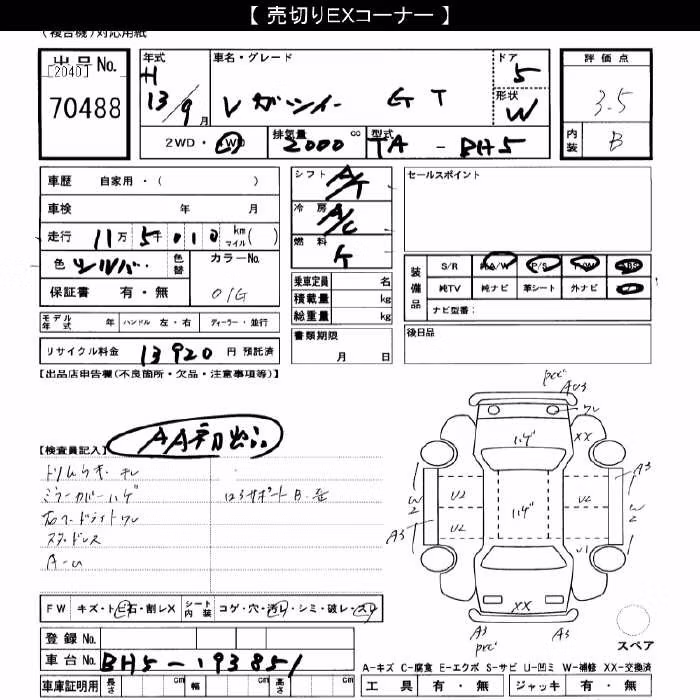 【 売切りEXコーナー 】
(複合機)対応用紙
出品No. [2040] 70488
年式 H 13/9 月
車名・グレード レガシィ GT
ドア 5
形状 W
評価点 3.5
内装 B
2WD・4WD
排気量 2000 cc
型式 TA - BH5
車歴 自家用・( )
車検 年 月
走行 11万5千010 km マイル( )
色 シルバー 色替 カラーNo. 01G
保証書 有・無
シフト A/T
冷房 A/C
燃料 ケ
乗車定員 名
積載量 kg
総重量 kg
書類期限 月 日
セールスポイント
装備品 S/R 純A/W P/S P/W ABS
純TV 純ナビ 革シート 外ナビ
ナビ型番:
後日品
モデル年式 年 ハンドル 左・右 ディーラー・並行
リサイクル料金 13920 円 預託済
【出品店申告欄(不良箇所・欠品・注意事項等)】
AA初出品
【検査員記入】
ミラーカバーハゲ
右フードライトワレ
スタッドレス
A-U
FW キズ・トビ石・割レX シート内装 コゲ・穴・汚レ・シミ・破レ・スレ
登録No.
車台No. BH5-193851
車庫証明用 長さ cm 幅 cm 高さ cm
A3
ワレ
ハゲ
XX
U2
U2
ハゲ
U2
A3
W2
W2
A3
U1
XX
A3
A3
スペア
A-キズ C-腐食 E-エクボ S-サビ U-凹ミ W-補修 XX-交換済
工具 有・無 ジャッキ 有・無